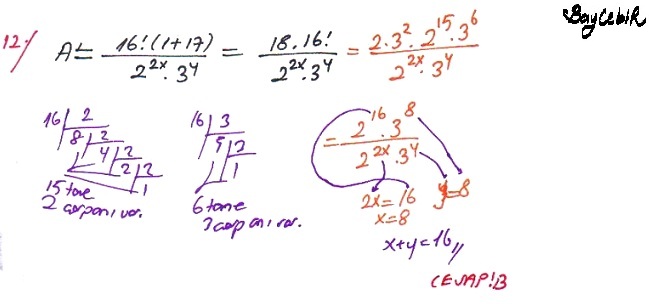 BayCebiR
12-) A = 16!(1+17) / 2^2x · 3^y = 18.16! / 2^2x · 3^y = 2·3^2 · 2^15 · 3^6 / 2^2x · 3^y
16 | 2
8 | 2
4 | 2
2 | 2
1
15 tane
2 çarpanı var.
16 | 3
5 | 3
1
6 tane
3 çarpanı var.
= 2^16 · 3^8 / 2^2x · 3^y
2x = 16
x = 8
y = 8
x+y = 16 //
CEVAP: B